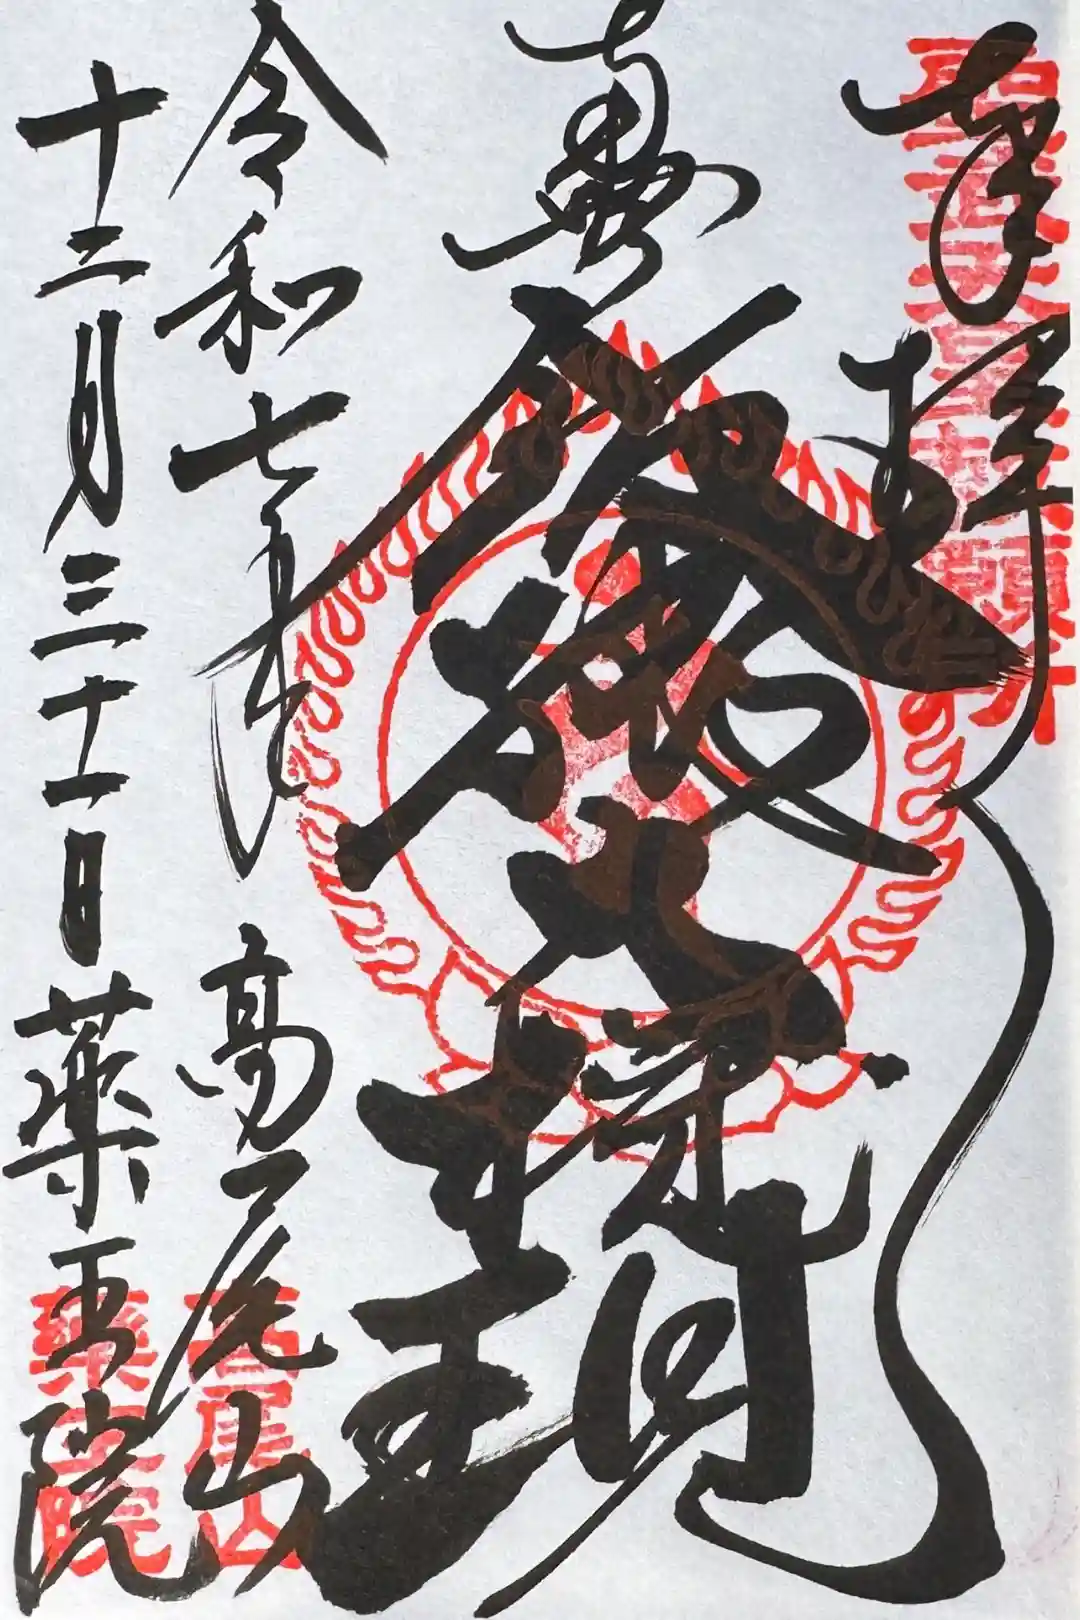 奉拝
飯縄大権現
令和七年 高尾山
十二月三十一日 薬王院
高尾山
薬王院